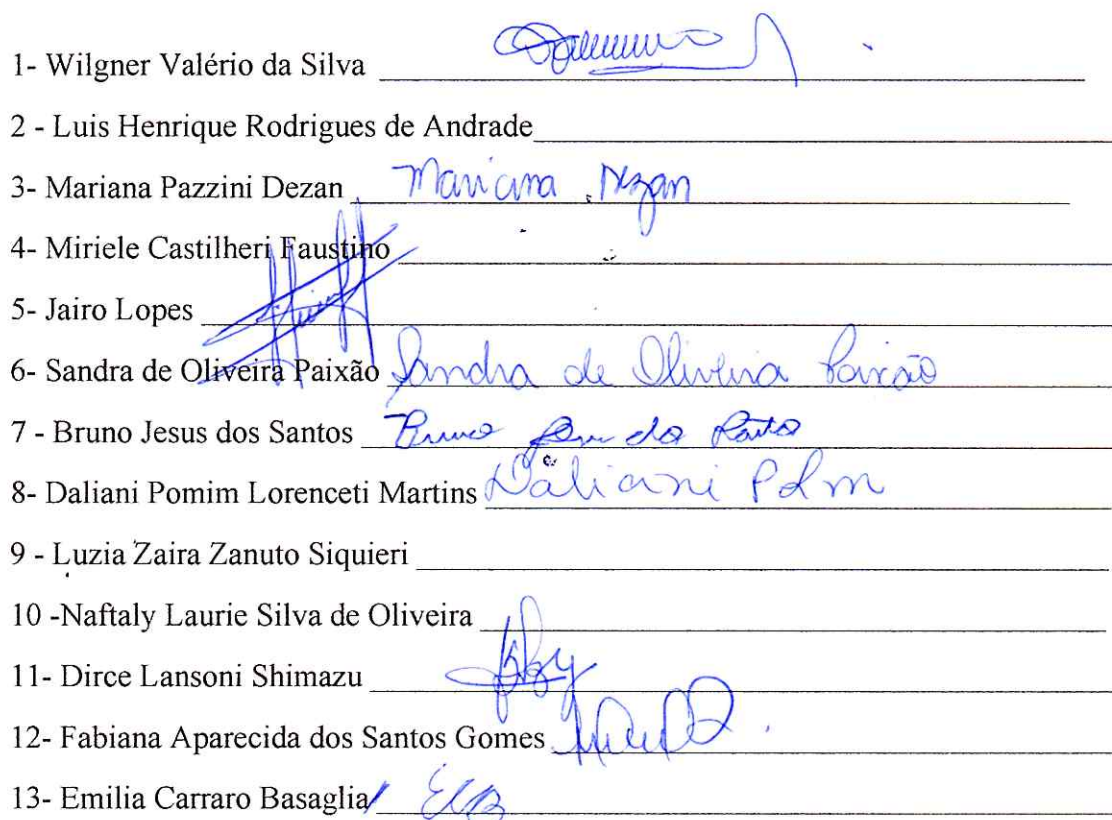 1- Wilgner Valério da Silva
2 - Luis Henrique Rodrigues de Andrade
3- Mariana Pazzini Dezan Mariana Dezan
4- Miriele Castilheri Faustino
5- Jairo Lopes
6- Sandra de Oliveira Paixão Sandra de Oliveira Paixão
7 - Bruno Jesus dos Santos Bruno Jesus dos Santos
8- Daliani Pomim Lorenceti Martins Daliani PLm
9 - Luzia Zaira Zanuto Siquieri
10 -Naftaly Laurie Silva de Oliveira
11- Dirce Lansoni Shimazu
12- Fabiana Aparecida dos Santos Gomes
13- Emilia Carraro Basaglia